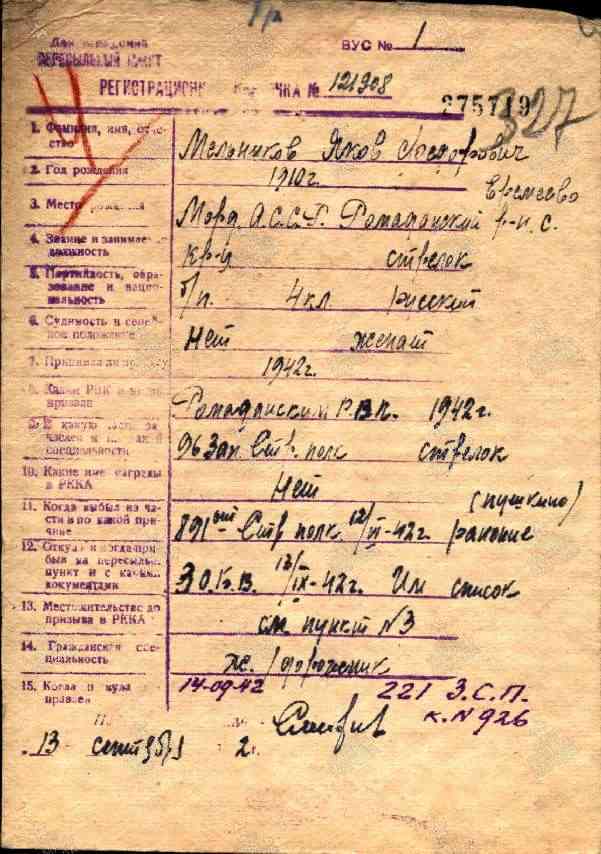 ВУС № 1
ПЕРЕСЫЛЬНЫЙ ПУНКТ
РЕГИСТРАЦИОНН КА № 121908
275719
327
1. Фамилия, имя, отче-
ство
Мельников Яков Федорович
2. Год рождения
1910г.
3. Место рождения
Еремеево
Морд. А.С.С.Р. Ромадановский р-н. с.
4. Звание и занимае
должность
кр-ц стрелок
5. Партийность, обра-
зование и нацио-
нальность
б/п. 4 кл. русский
6. Судимость и семей-
ное положение
Нет женат
7. Принимал ли
1942г.
8. Каким РВК и
призван
Ромаданским Р.В.К. 1942г.
9. В какую часть за-
числен и по какой
специальности
96 Зап. Стр. полк стрелок
10. Какие имел награды
в РККА
Нет
(пушкино)
11. Когда выбыл из ча-
сти и по какой при-
чине
891 Стр полк 12/VI-42г. ранение
12. Откуда и когда при-
был на пересыльн.
пункт и с какими
документами
З.О.К.В. 13/IX-42г. Им список
13. Местожительство до
призыва в РККА
см. пункт №3
14. Гражданская спе-
циальность
ж/дорожник
15. Когда и куда
правлен
14-09-42 221 З.С.П.
к. N 926
13 сентября 2г.